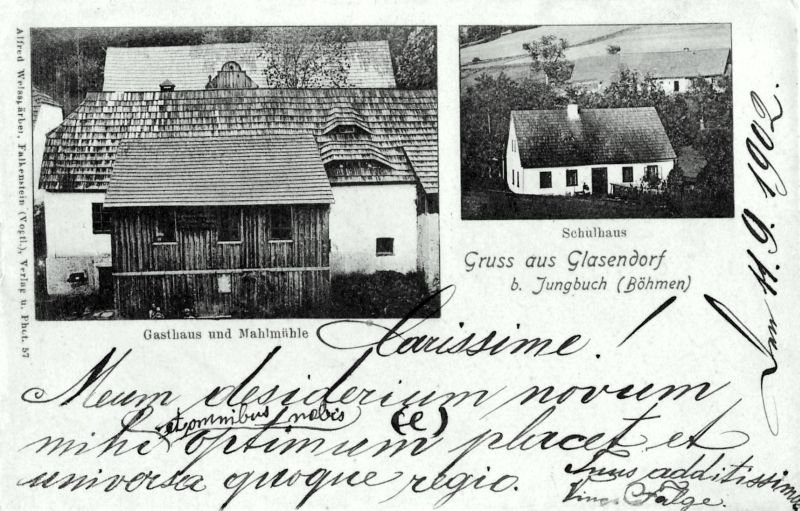 Alfred Weissgärber, Falkenstein (Vogtl.), Verlag u. Phot. 57
Gasthaus und Mahlmühle
Schulhaus
Gruss aus Glasendorf
b. Jungbuch (Böhmen)
11. 9. 1902.
Carissime!
Meum desiderium novum
et omnibus nobis (e)
mihi optimum placet et
universa quoque regio.
Tuus additissimus